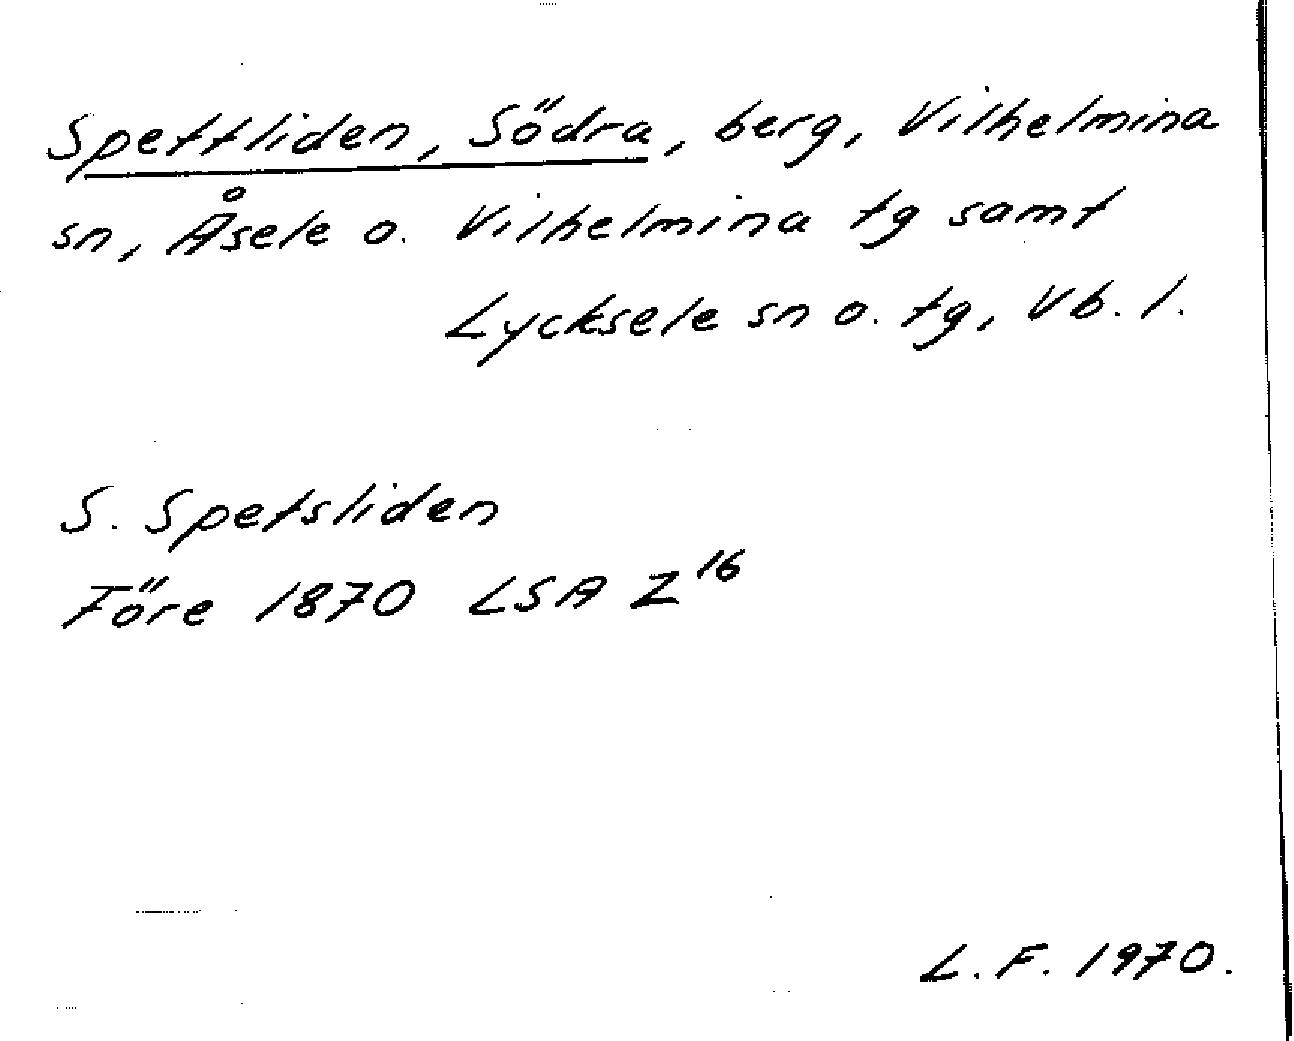 Spettliden, Södra, berg, Vilhelmina
sn, Åsele o. Vilhelmina tg samt
Lycksele sn o. tg, Vb. l.
S. Spetsliden
Före 1870 LSA Z¹⁶
L. F. 1970.